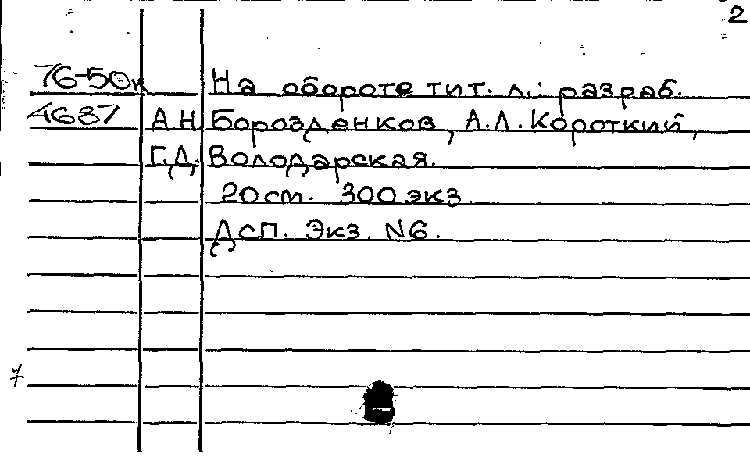 2
76-50к На обороте тит. л.: разраб.
4687 А.Н. Борозденков, А.Л. Короткий,
Г.Д. Володарская.
20 см. 300 экз
Дсп. Экз. N6.
7